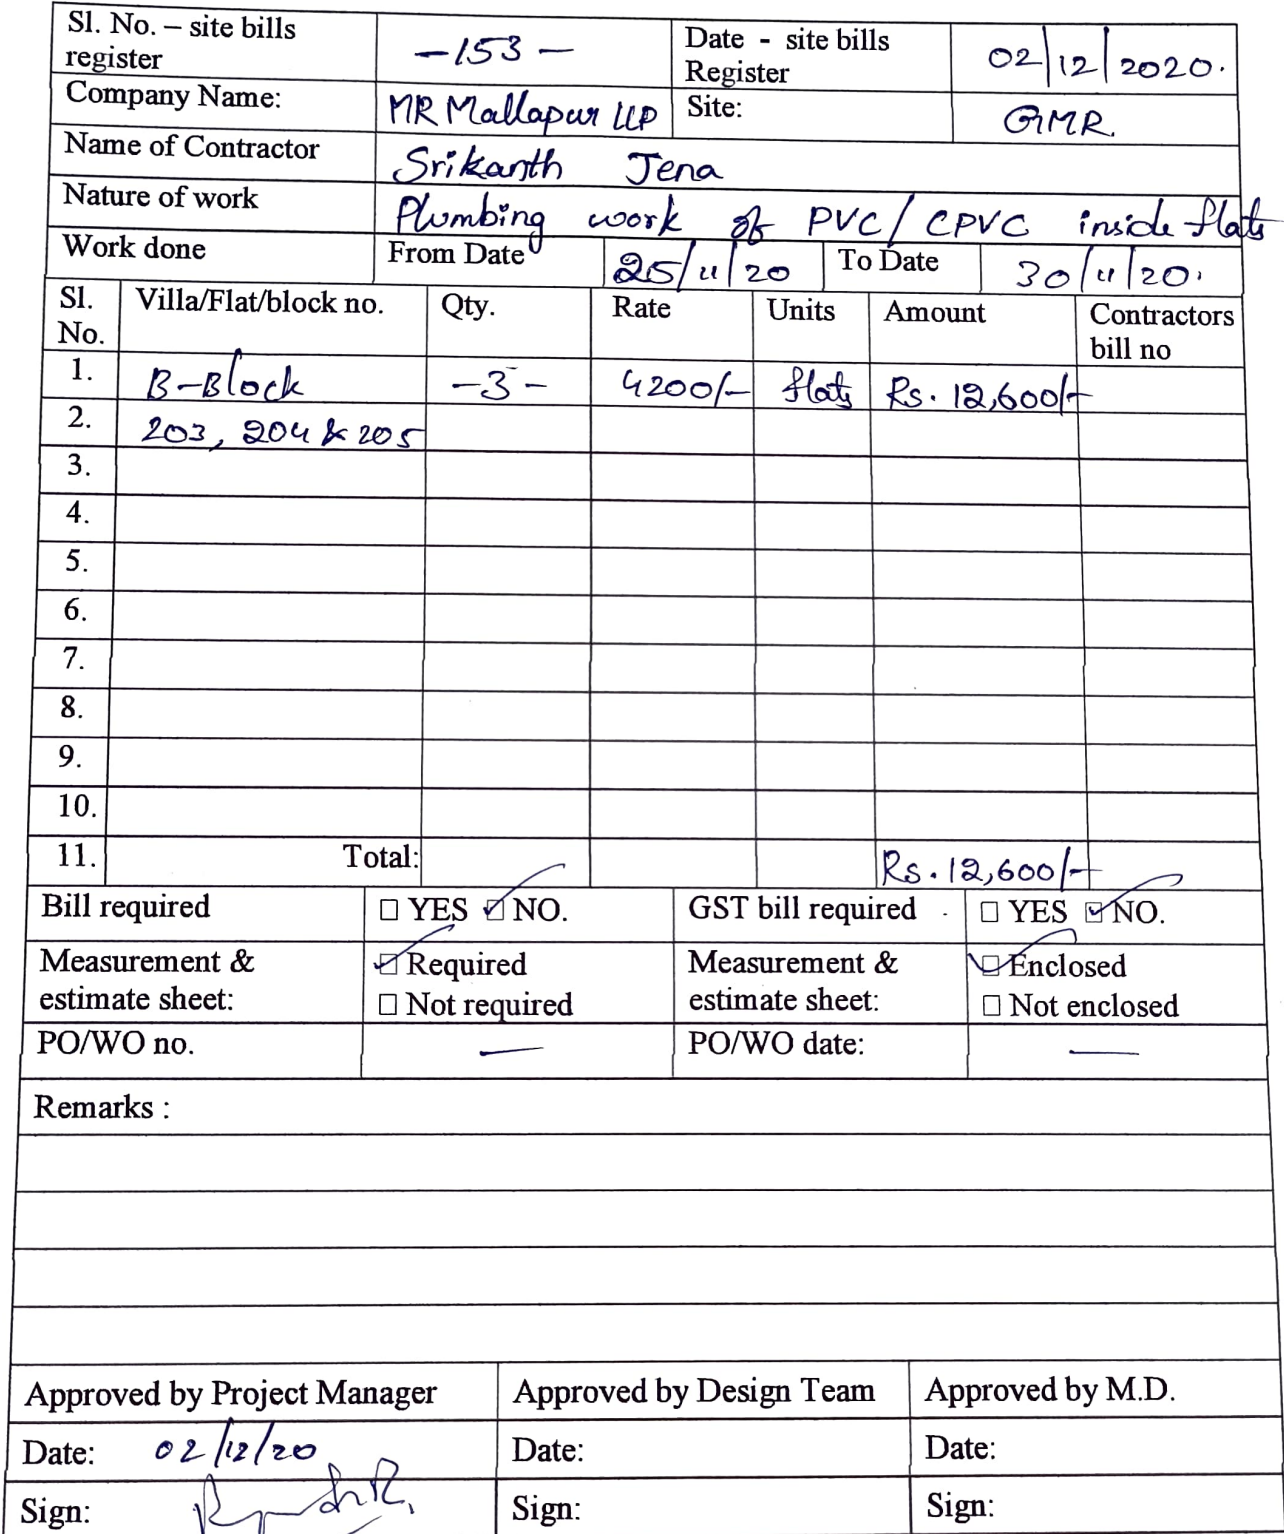 Sl. No. – site bills register -153- Date - site bills Register 02/12/2020.
Company Name: MR Mallapur LLP Site: GMR.
Name of Contractor Srikanth Jena
Nature of work Plumbing work of PVC/ CPVC inside flats
Work done From Date 25/11/20 To Date 30/11/20.
Sl. No. Villa/Flat/block no. Qty. Rate Units Amount Contractors bill no
1. B-Block -3- 4200/- flats Rs. 12,600/-
2. 203, 204 & 205
3.
4.
5.
6.
7.
8.
9.
10.
11. Total: Rs. 12,600/-
Bill required ☐ YES ☑ NO. GST bill required ☐ YES ☑ NO.
Measurement & estimate sheet: ☑ Required ☐ Not required Measurement & estimate sheet: ☑ Enclosed ☐ Not enclosed
PO/WO no. — PO/WO date: —
Remarks :
Approved by Project Manager Approved by Design Team Approved by M.D.
Date: 02/12/20 Date: Date:
Sign: Sign: Sign: